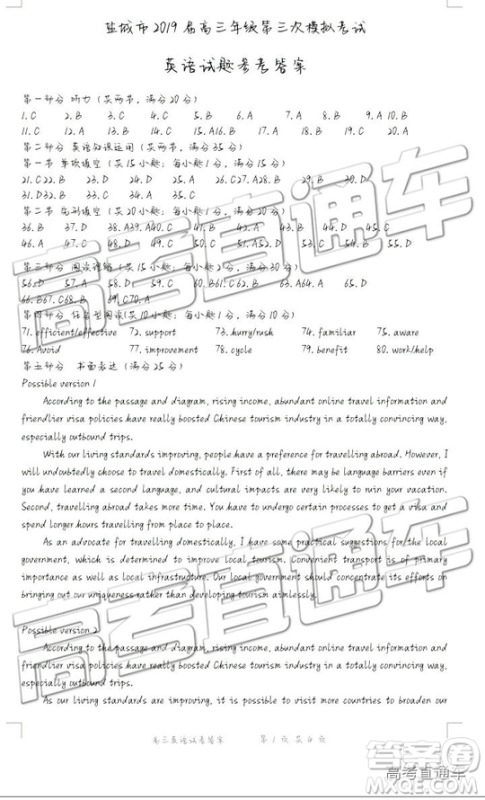 盐城市2019届高三年级第三次模拟考试
英语试题参考答案
第一部分 听力（共两节，满分20分）
1.C 2.B 3.C 4.C 5.B 6.A 7.A 8.B 9.A 10.B
11.C 12.A 13.B 14.C 15.A 16.B 17.B 18.B 19.C 20.A
第二部分 英语知识运用（共两节，满分35分）
第一节 单项填空（共15小题；每小题1分，满分15分）
21.C 22.B 23.D 24.D 25.A 26.C 27.A 28.B 29.B 30.D
31.D 32.B 33.C 34.A 35.C
第二节 完形填空（共20小题；每小题1分，满分20分）
36.B 37.D 38.A 39.A 40.C 41.B 42.A 43.B 44.D 45.C
46.A 47.C 48.D 49.C 50.C 51.A 52.D 53.C 54.B 55.D
第三部分 阅读理解（共15小题；每小题2分，满分30分）
56.D 57.A 58.D 59.C 60.B 61.C 62.B 63.A 64.A 65.D
66.B 67.C 68.B 69.C 70.A
第四部分 任务型阅读（共10小题；每小题1分，满分10分）
71. efficient/effective 72. support 73. hurry/rush 74. familiar 75. aware
76. Avoid 77. improvement 78. cycle 79. benefit 80. work/help
第五部分 书面表达（满分25分）
Possible version 1
According to the passage and diagram, rising income, abundant online travel information and
friendlier visa policies have really boosted Chinese tourism industry in a totally convincing way,
especially outbound trips.
With our living standards improving, people have a preference for travelling abroad. However, I
will undoubtedly choose to travel domestically. First of all, there may be language barriers even if
you have learned a second language, and cultural impacts are very likely to ruin your vacation.
Second, travelling abroad takes more time. You have to undergo certain processes to get a visa and
spend longer hours travelling from place to place.
As an advocate for travelling domestically, I have some practical suggestions for the local
government, which is determined to improve local tourism. Convenient transport is of primary
importance as well as local infrastructure. Our local government should concentrate its efforts on
bringing out our uniqueness rather than developing tourism aimlessly.
Possible version 2
According to the passage and diagram, rising income, abundant online travel information and
friendlier visa policies have really boosted Chinese tourism industry in a totally convincing way,
especially outbound trips.
As our living standards are improving, it is possible to visit more countries to broaden our
高三英语试卷答案 第1页 共4页
高考直通车
高考直通车
高考直通车
答案圈